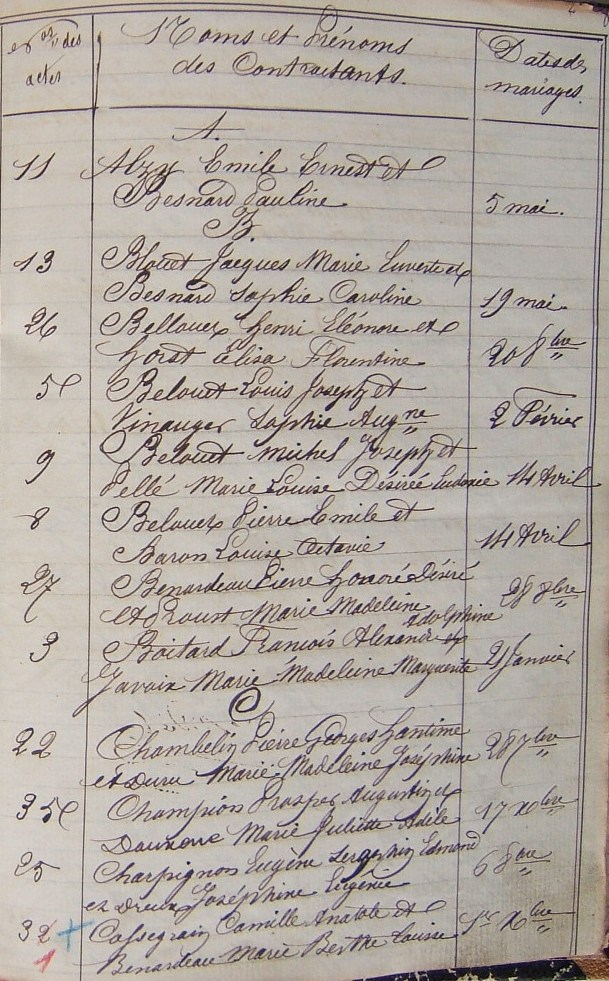 Nos des Noms et Prénoms Dates des
actes des Contractants. mariages.
A.
11 Alzy Emile Ernest et
Besnard Pauline 5 mai.
B.
13 Blouet Jacques Marie Euverte et
Besnard Sophie Caroline 19 mai
26 Bellouet Henri Eléonore et
Horst Elisa Florentine 20 8bre
5 Belouet Louis Joseph et
Vinauger Sophie Augne 2 Février
9 Belouet Michel Joseph et
Pellé Marie Louise Désirée Eudoxie 14 Avril
8 Belouet Pierre Emile et
Baron Louise Octavie 14 Avril
27 Benardeau Pierre Honoré Désiré
et Proust Marie Madeleine Adolphine 28 8bre
3 Boitard François Alexandre et
Javoix Marie Madeleine Marguerite 21 Janvier
C
22 Chambelin Pierre Georges
et Duru Marie Madeleine Joséphine 28 7bre
35 Champion Prosper Augustin et
Marie Juliette Adèle 17 Xbre
25 Charpignon Eugène Edmond
et Dreux Joséphine Eugénie 6 8bre
32 + Cassegrain Camille Anatole et
1 Benardeau Marie Berthe Louise 1er Xbre